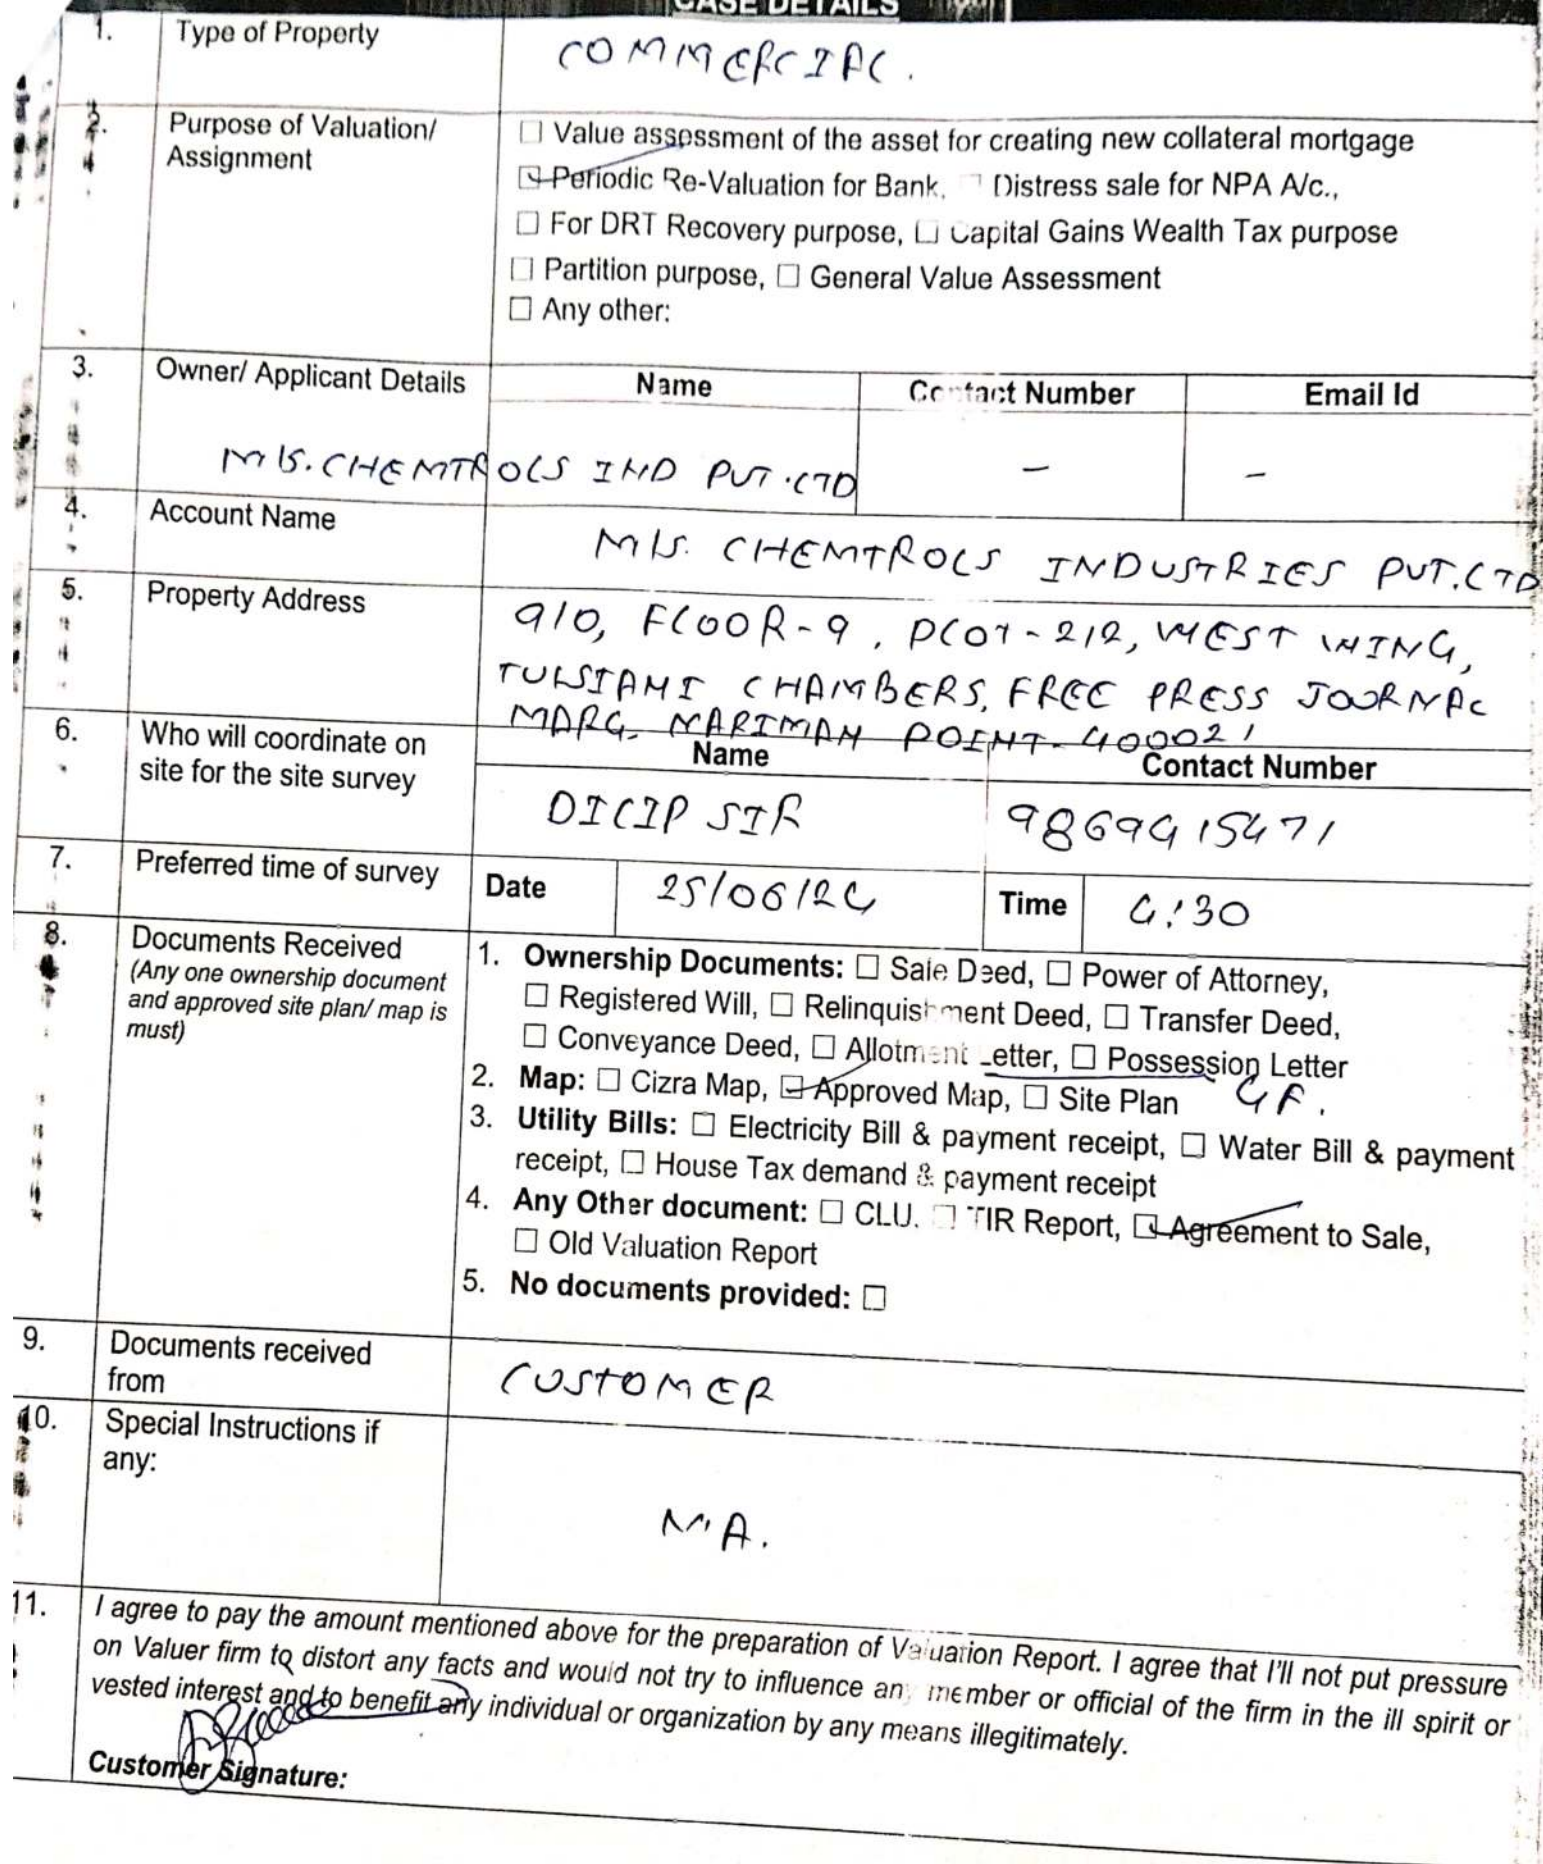 CASE DETAILS
1. Type of Property COMMERCIAL.
2. Purpose of Valuation/ Assignment
☐ Value assessment of the asset for creating new collateral mortgage
☑ Periodic Re-Valuation for Bank, ☐ Distress sale for NPA A/c.,
☐ For DRT Recovery purpose, ☐ Capital Gains Wealth Tax purpose
☐ Partition purpose, ☐ General Value Assessment
☐ Any other:
3. Owner/ Applicant Details Name Contact Number Email Id
M/S. CHEMTROLS IND PVT. LTD - -
4. Account Name M/S. CHEMTROLS INDUSTRIES PVT. LTD
5. Property Address 910, FLOOR-9, PLOT-212, WEST WING,
TULSIANI CHAMBERS, FREE PRESS JOURNAL
MARG, NARIMAN POINT-400021
6. Who will coordinate on site for the site survey Name Contact Number
DILIP SIR 9869415471
7. Preferred time of survey Date 25/06/24 Time 4:30
8. Documents Received
(Any one ownership document
and approved site plan/ map is
must)
1. Ownership Documents: ☐ Sale Deed, ☐ Power of Attorney,
☐ Registered Will, ☐ Relinquishment Deed, ☐ Transfer Deed,
☐ Conveyance Deed, ☐ Allotment Letter, ☐ Possession Letter
2. Map: ☐ Cizra Map, ☑ Approved Map, ☐ Site Plan GF.
3. Utility Bills: ☐ Electricity Bill & payment receipt, ☐ Water Bill & payment
receipt, ☐ House Tax demand & payment receipt
4. Any Other document: ☐ CLU. ☐ TIR Report, ☑ Agreement to Sale,
☐ Old Valuation Report
5. No documents provided: ☐
9. Documents received from CUSTOMER
10. Special Instructions if any: N.A.
11. I agree to pay the amount mentioned above for the preparation of Valuation Report. I agree that I'll not put pressure
on Valuer firm to distort any facts and would not try to influence any member or official of the firm in the ill spirit or
vested interest and to benefit any individual or organization by any means illegitimately.
Customer Signature: